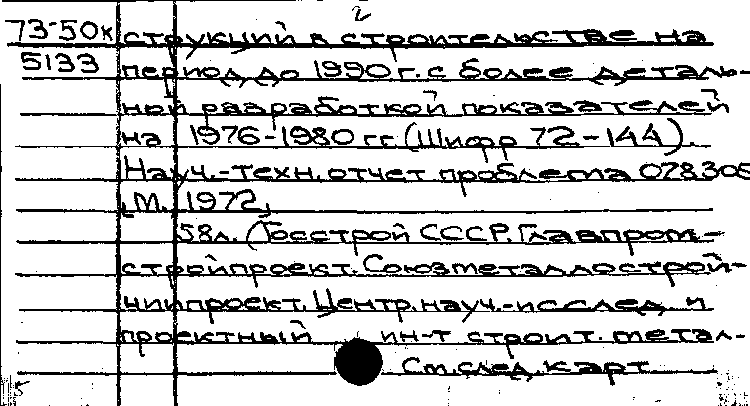 2
73-50к струкций в строительстве на
5133 период до 1990 г. с более деталь-
ной разработкой показателей
на 1976-1980 гг (Шифр 72-144).
Науч.-техн. отчет проблема 078305
[М., 1972]
58л. (Госстрой СССР. Главпром-
стройпроект. Союзметаллострой-
ниипроект. Центр. науч.-исслед. и
проектный ин-т строит. метал-
См. след. карт